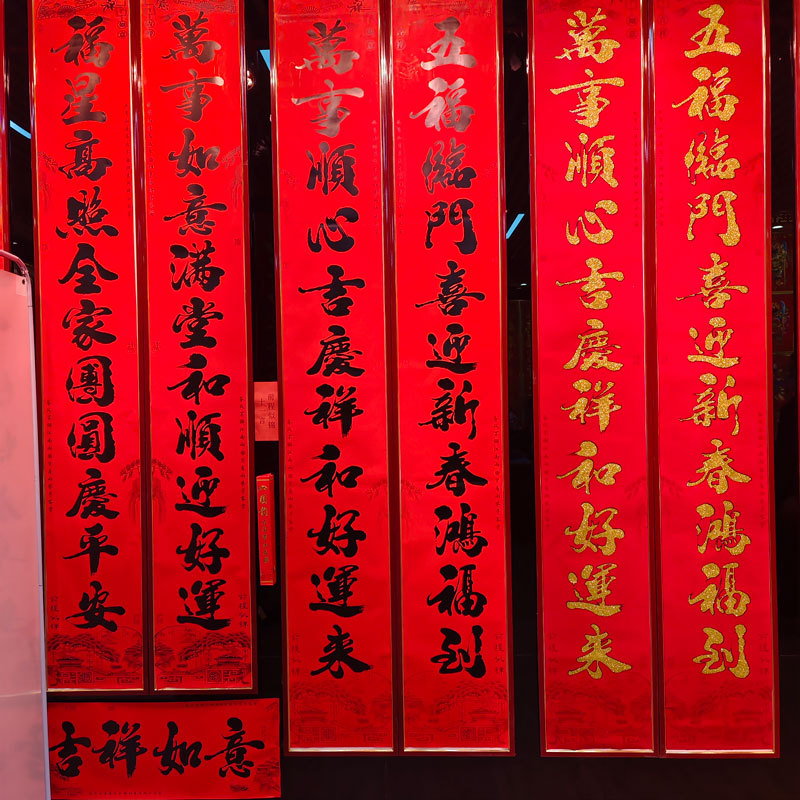 五福臨門喜迎新春鴻福到
萬事順心吉慶祥和好運来
五福臨門喜迎新春鴻福到
萬事順心吉慶祥和好運来
萬事如意满堂和順迎好運
福星高照全家團圓慶平安
吉祥如意
前程似锦